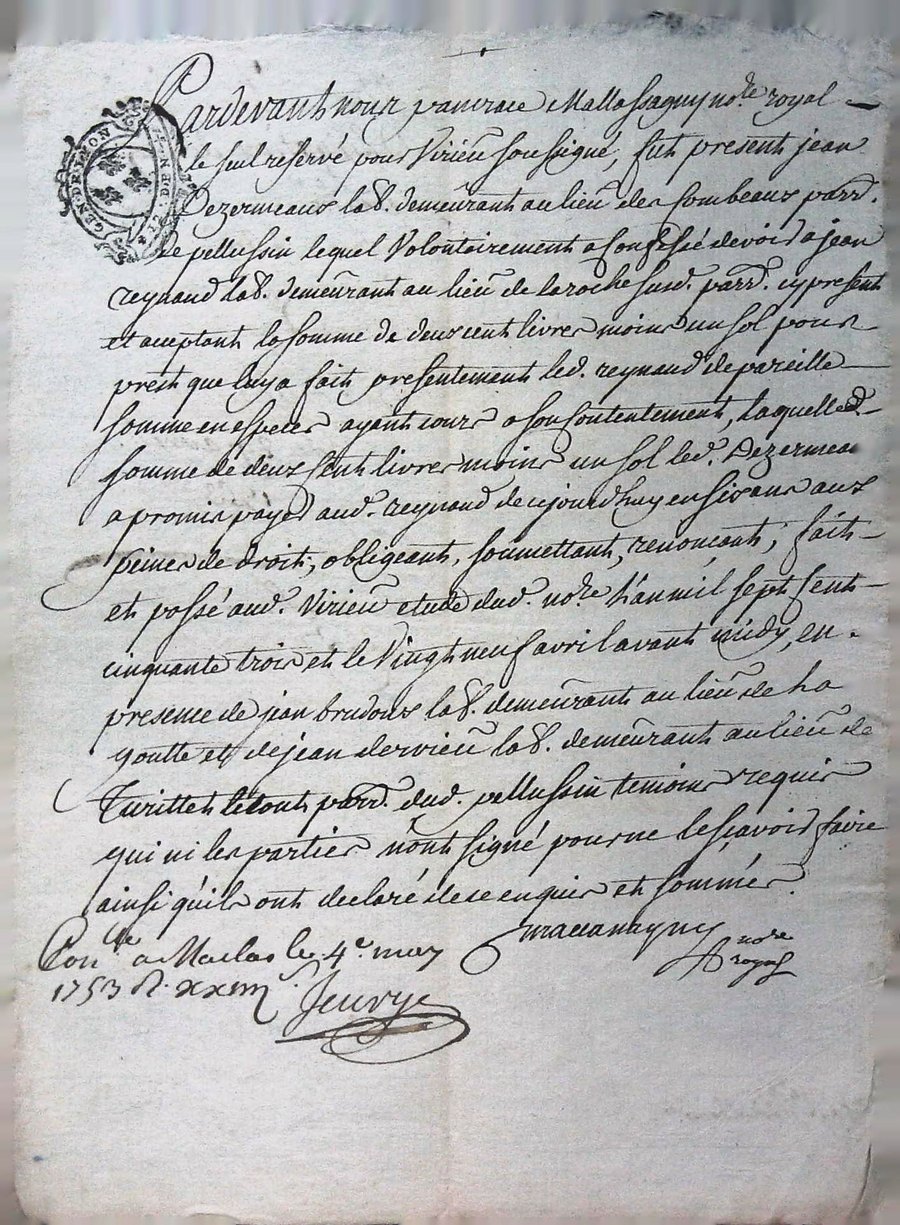 Pardevant nous pancrace Mallassagny no.re royal
le seul reservé pour Virieu soussigné, fut present jean
Dezermeaux lab. demeurant au lieu des Combeaux parr.
de pellussin lequel Volontairement a Confessé devoir a jean
reynaud lab. demeurant au lieu de laroche susd. parr. cy present
et aceptant la somme de deux cent livres moins un sol pour
prest que luy a fait presentement led. reynaud de pareille
somme en especes ayant cours a son Contentement, laquelle d.
somme de deux Cent livres moins un sol led. Dezermeau
a promis payer aud. reynaud de cejourdhuy en six ans aux
peines de droit, obligeant, soumettant, renonçant; fait
et passé aud. Virieu etude dud. no.re L'an mil sept Cent
cinquante trois et le Vingt neuf avril avant midy, en
presence de jean brudoux lab. demeurant au lieu de La
goutte et de jean dervieu lab. demeurant au lieu de
le tout parr. dud. pellussin temoins requis
qui ni les parties n'ont signé pour ne le sçavoir faire
ainsi qu'ils ont declaré de ce enquis et sommés.
Mallassagny no.re
royal
Con.lle a Maclas le 4e may
1753 R.
Jeurye
GEN. DE LYON